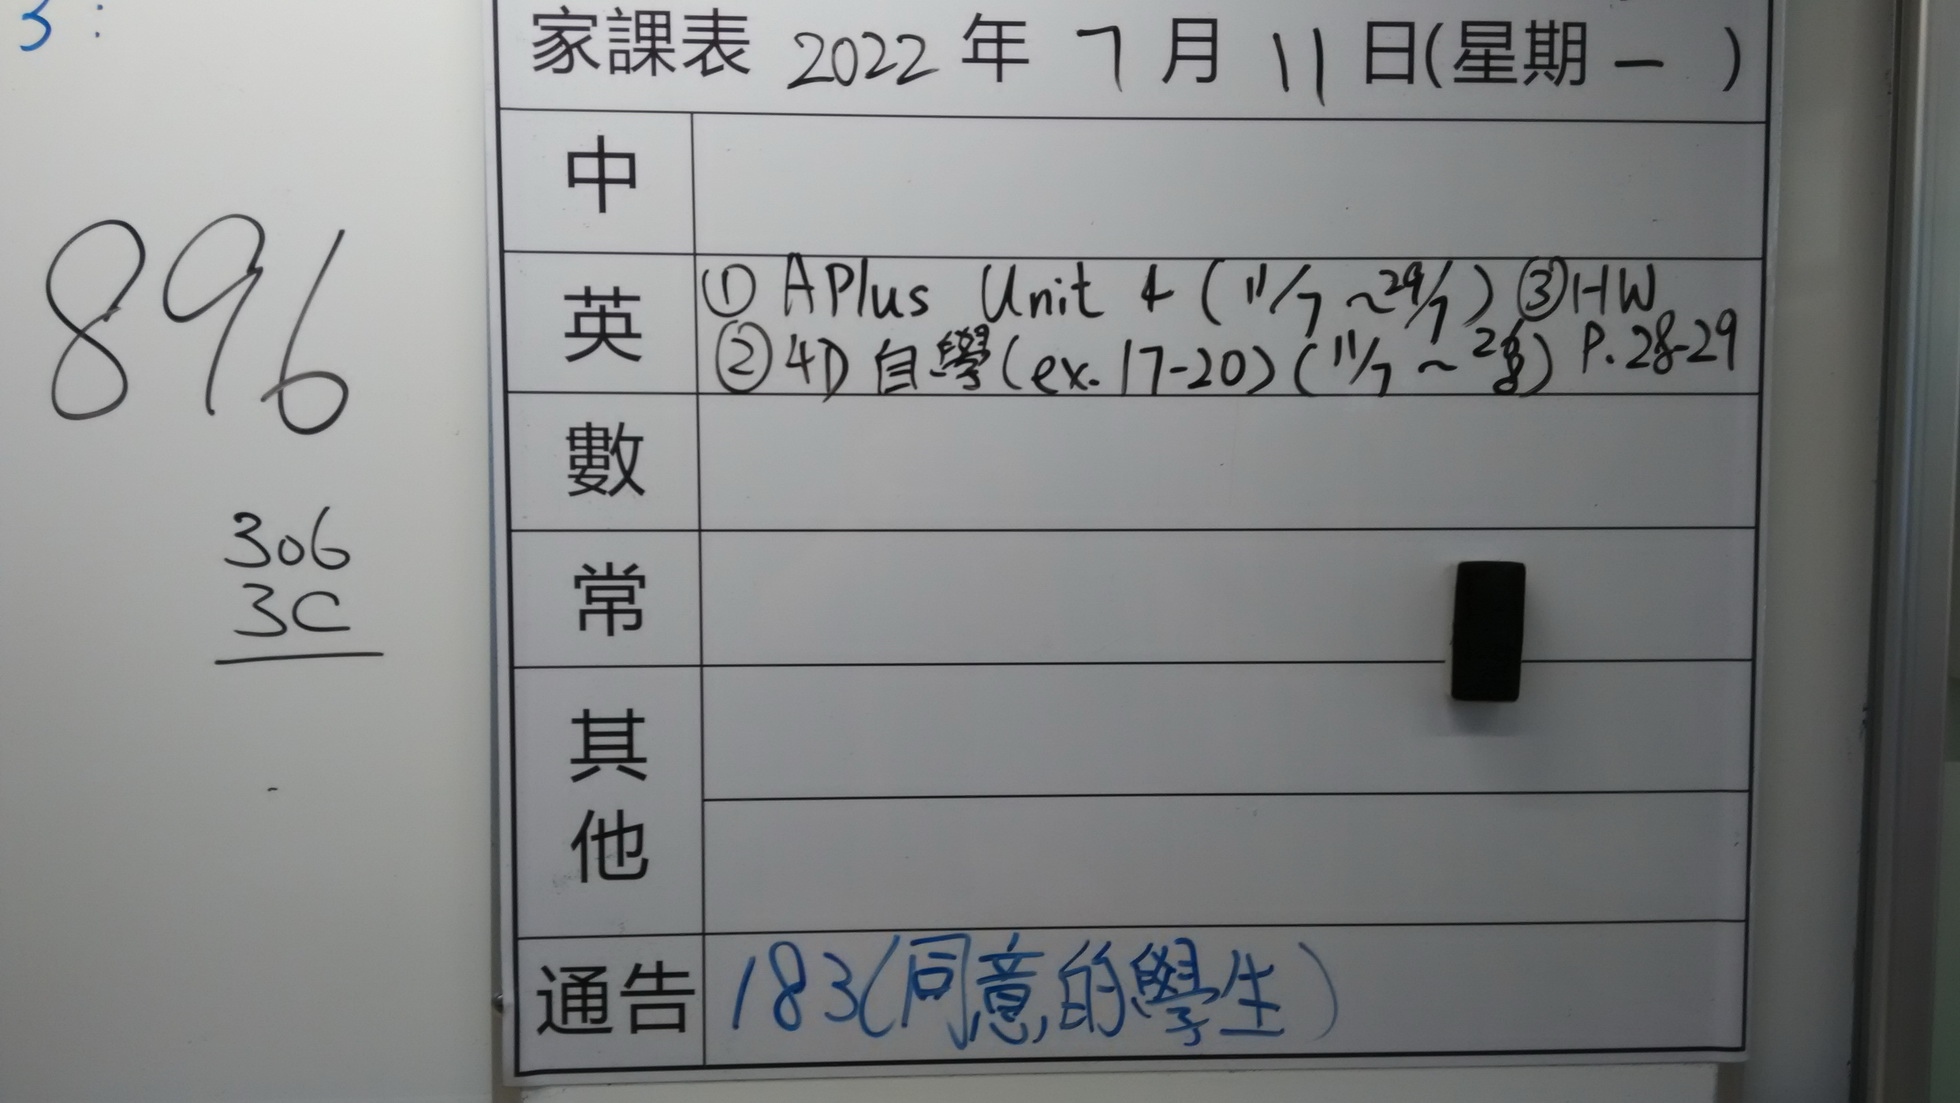 3:
896
306
3C
家課表 2022 年 7 月 11 日(星期一)
中
英
① APlus Unit 4 (11/7 ~ 29/7) ③ HW
② 4D 自學(ex. 17-20) (11/7 ~ P. 28-29
數
常
其他
通告 183(同意的學生)